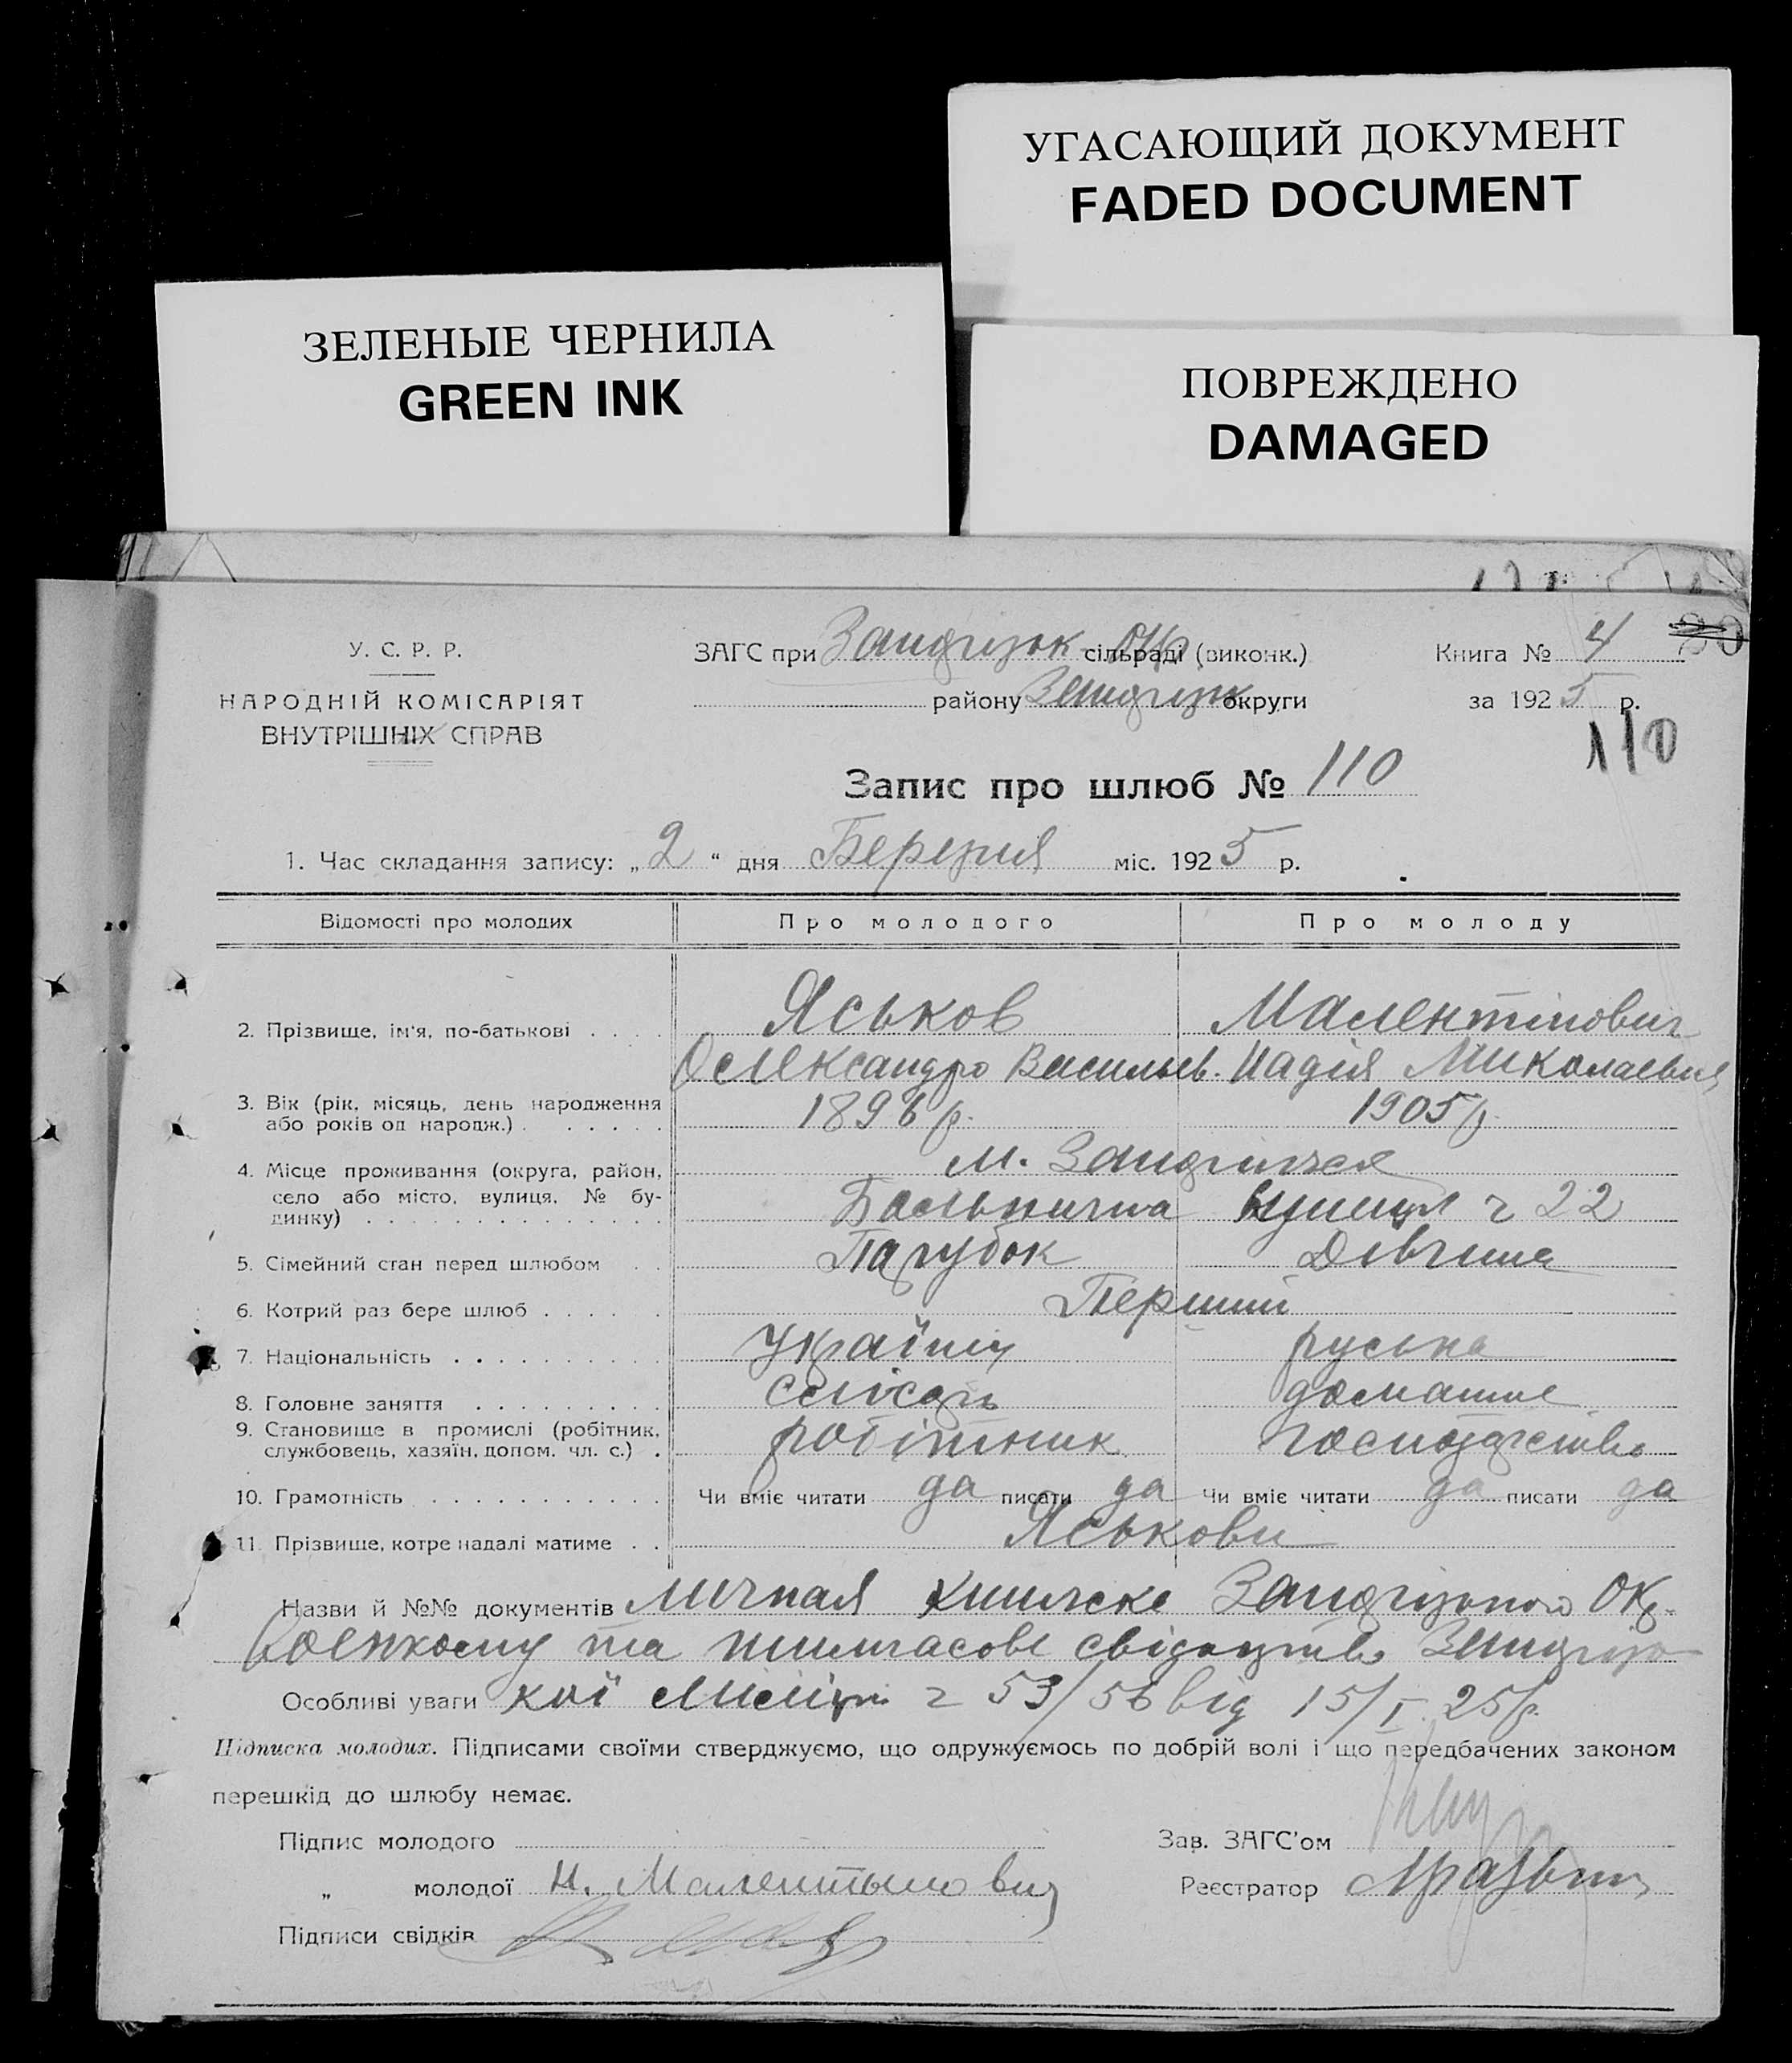 УГАСАЮЩИЙ ДОКУМЕНТ
FADED DOCUMENT
ЗЕЛЕНЫЕ ЧЕРНИЛА
GREEN INK
ПОВРЕЖДЕНО
DAMAGED
У. С. Р. Р.
НАРОДНІЙ КОМІСАРІЯТ
ВНУТРІШНІХ СПРАВ
ЗАГС при сільраді (виконк.)
району округи
Книга № 4
за 1925 р.
110
Запис про шлюб № 110
1. Час складання запису: „2“ дня Березня міс. 1925 р.
Відомості про молодих Про молодого Про молоду
2. Прізвище, ім'я, по-батькові . . . . Яськов Малентинович
Олександро Васильев. Надія Миколаевна
3. Вік (рік, місяць, день народження
або років од народж.) . . . . . . 1896 р. 1905 р.
4. Місце проживання (округа, район, м.
село або місто, вулиця, № бу-
динку) . . . . . . . . . . . . . . Больнична вулиця ч 22
5. Сімейний стан перед шлюбом . . Парубок Дівчина
6. Котрий раз бере шлюб . . . . . Перший
7. Національність . . . . . . . . . . Українец руська
8. Головне заняття . . . . . . . . . слюсарь домашне
9. Становище в промислі (робітник,
службовець, хазяїн, допом. чл. с.) . робітник господарство
10. Грамотність . . . . . . . . . . . . Чи вміє читати да писати да Чи вміє читати да писати да
11. Прізвище, котре надалі матиме . . Яськови
Назви й №№ документів личная книжка Окр.
военкому та тимчасове свідоцтво
Особливі уваги кої міліціи ч 53/56 від 15/I 25 р.
Підписка молодих. Підписами своїми стверджуємо, що одружуємось по добрій волі і що передбачених законом
перешкід до шлюбу немає.
Підпис молодого
Зав. ЗАГС'ом
„ молодої Н. Малентынович
Реєстратор
Підписи свідків